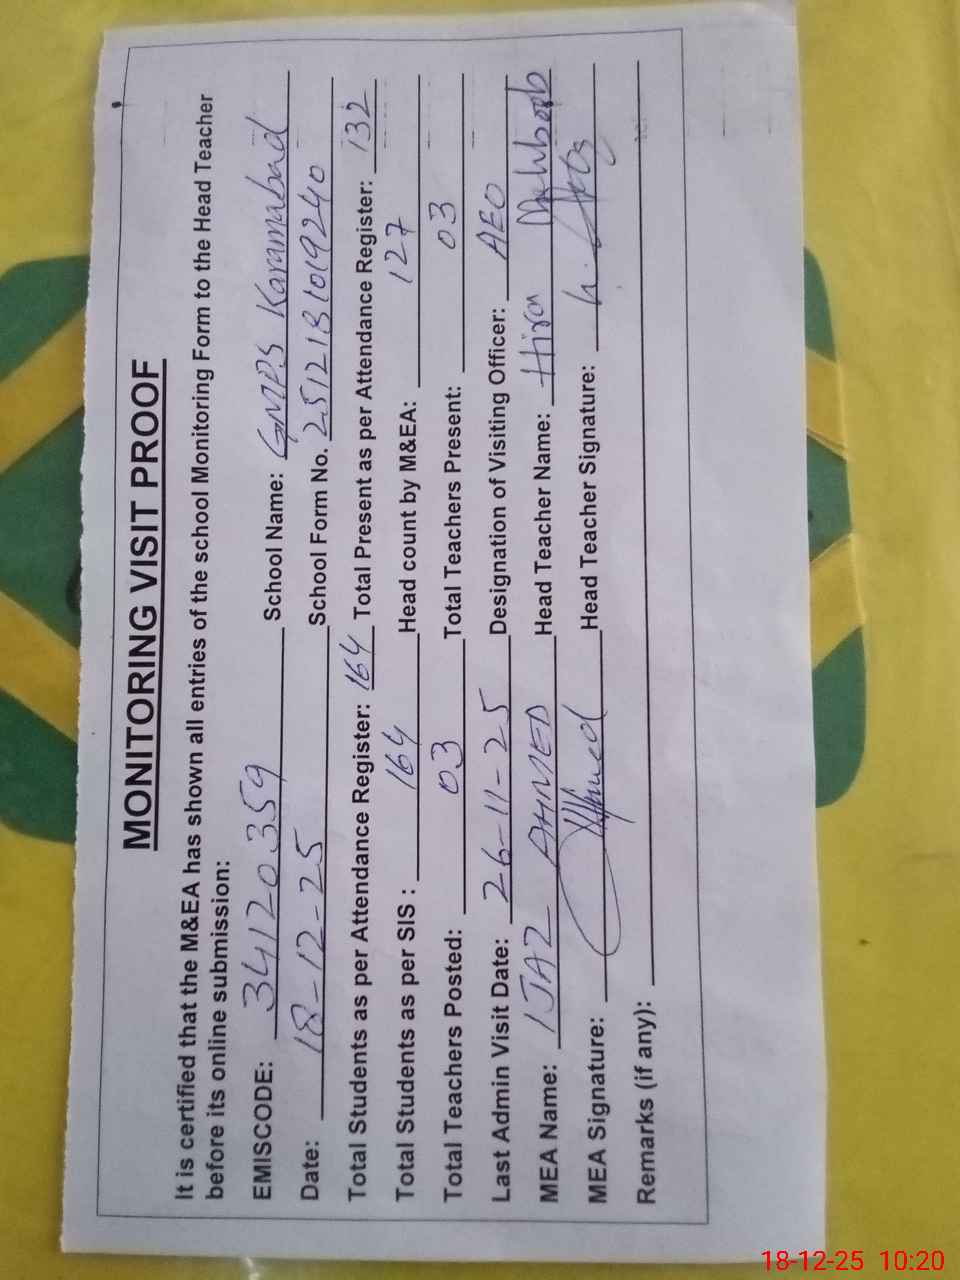 MONITORING VISIT PROOF
It is certified that the M&EA has shown all entries of the school Monitoring Form to the Head Teacher
before its online submission:
EMISCODE: 34120359 School Name: GMPS Karamabad
Date: 18-12-25 School Form No. 2512181019240
Total Students as per Attendance Register: 164 Total Present as per Attendance Register: 132
Total Students as per SIS : 164 Head count by M&EA: 127
Total Teachers Posted: 03 Total Teachers Present: 03
Last Admin Visit Date: 26-11-25 Designation of Visiting Officer: AEO
MEA Name: IJAZ AHMED Head Teacher Name: Hira Mahboob
MEA Signature: Head Teacher Signature:
Remarks (if any):
18-12-25 10:20